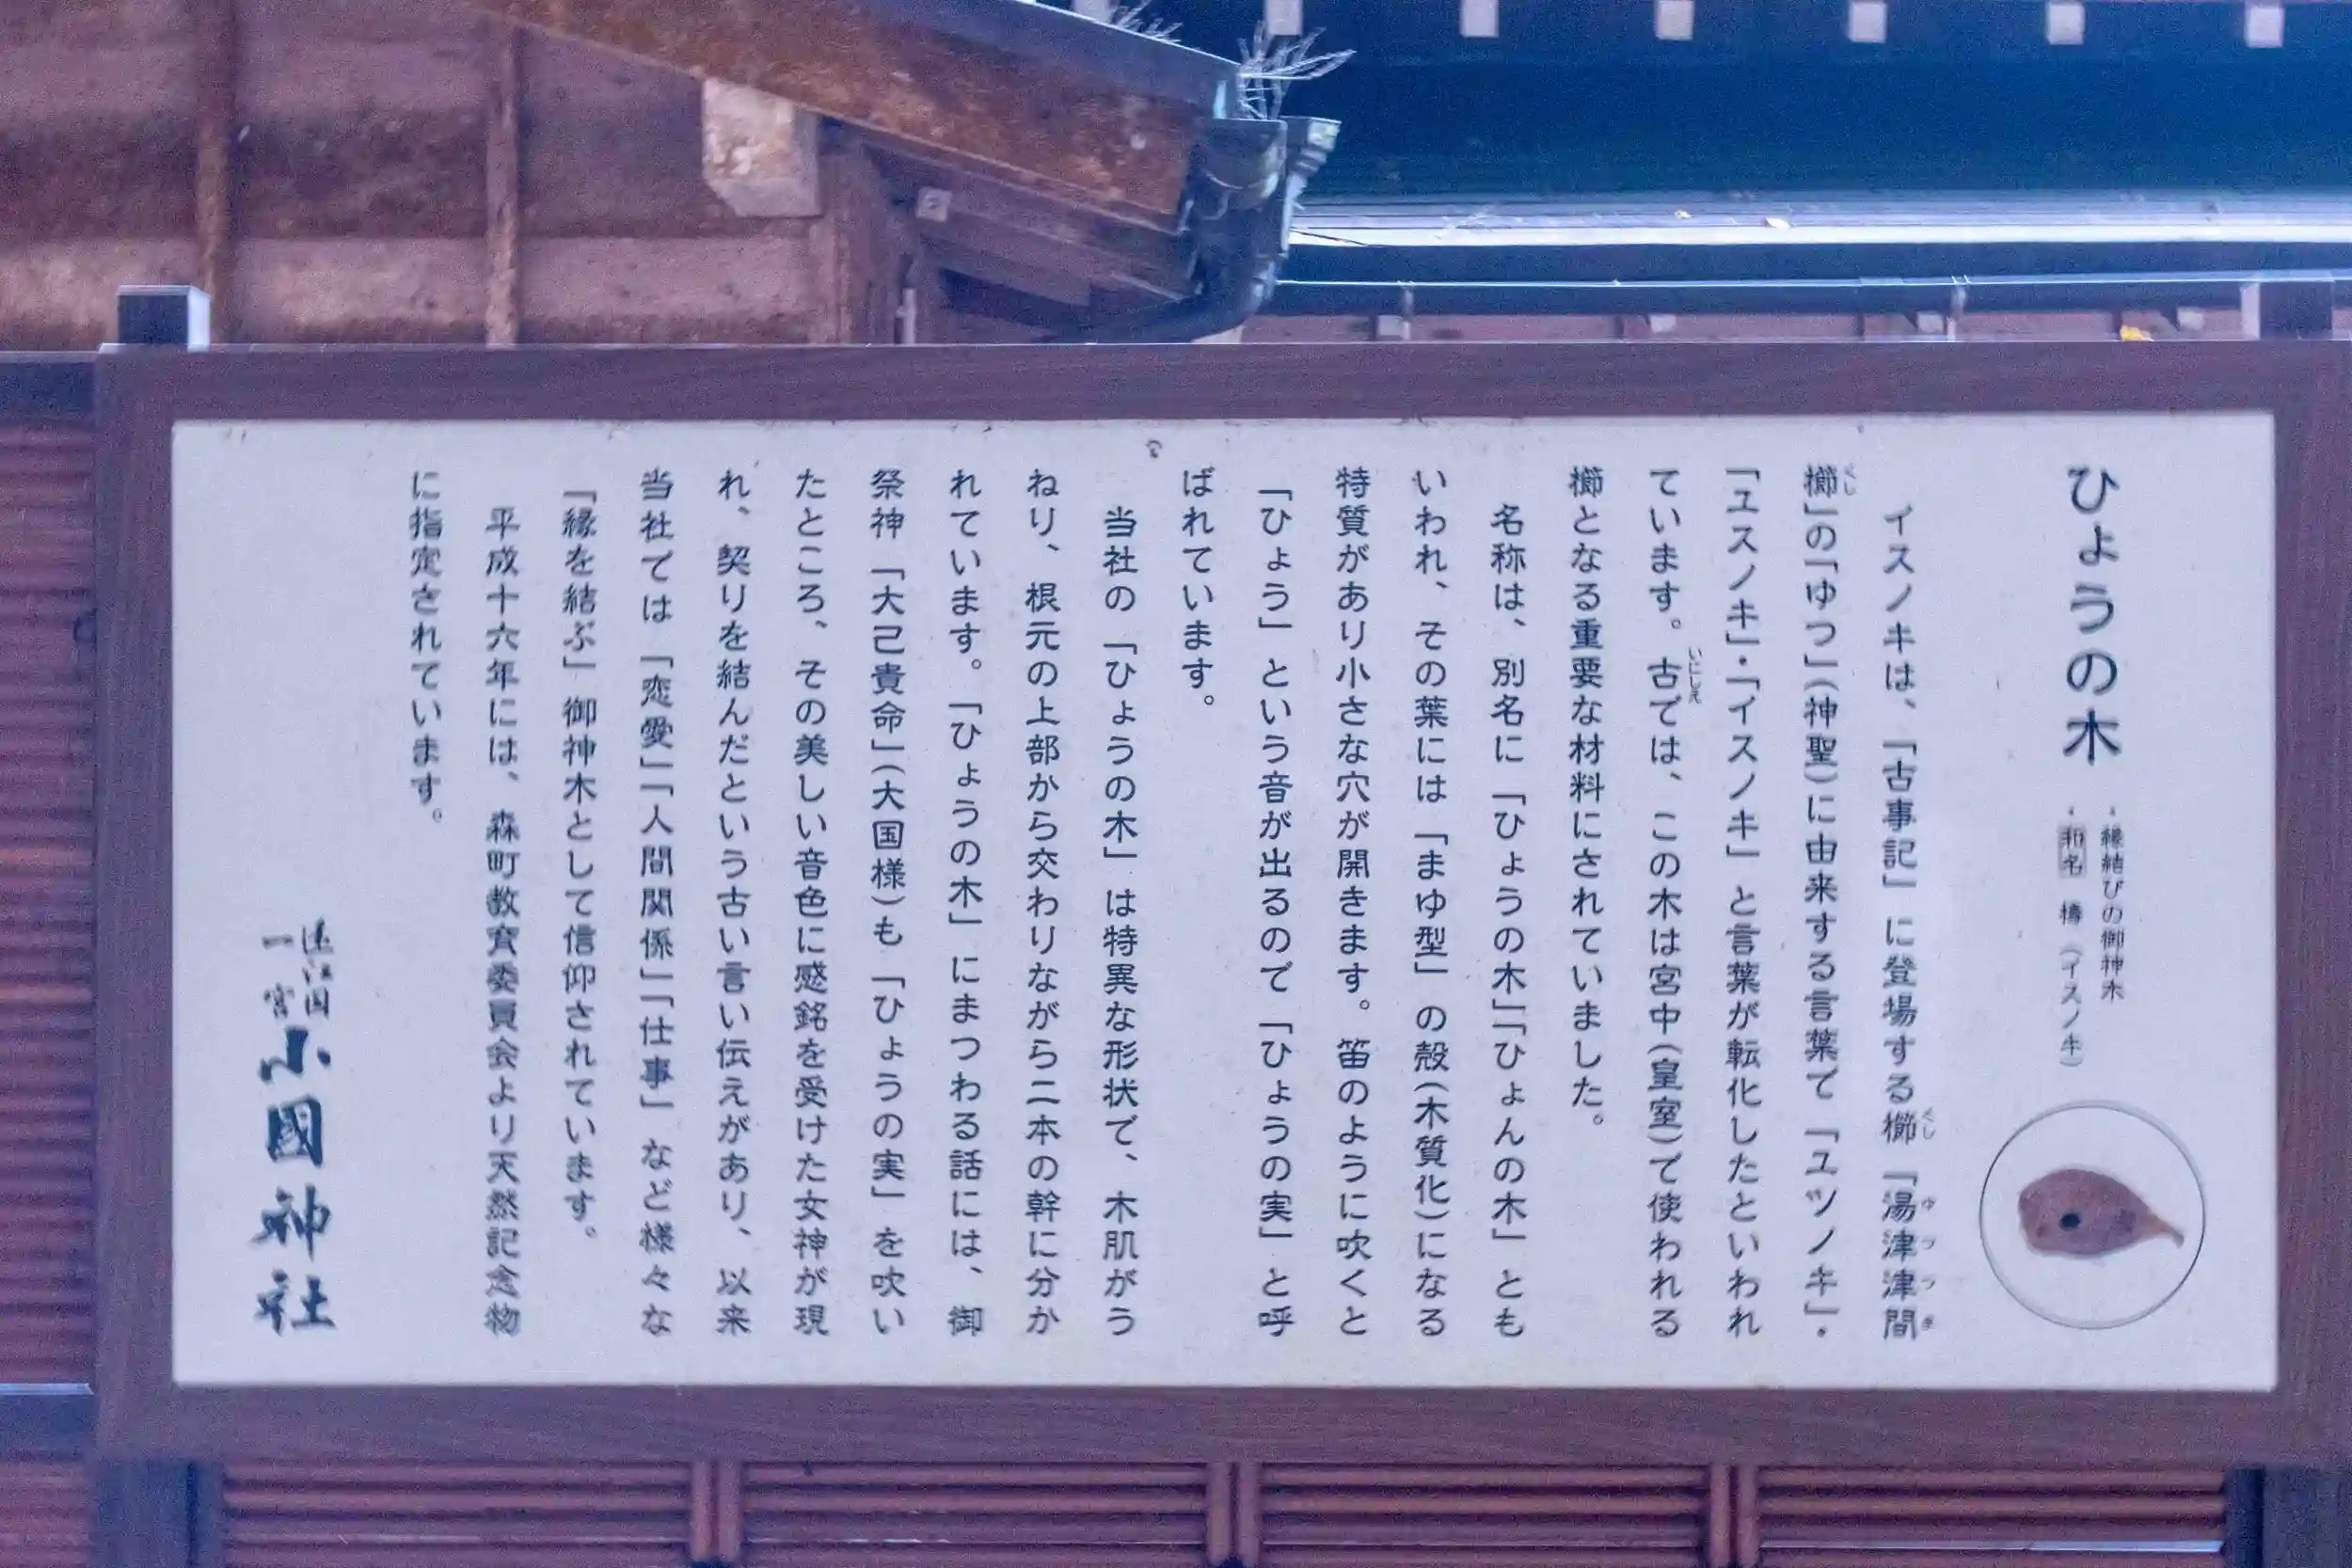 ひょうの木
・縁結びの御神木
・和名 檮(イスノキ)
イスノキは、「古事記」に登場する櫛「湯津津間
櫛」の「ゆつ」(神聖)に由来する言葉で「ユツノキ」・
「ユスノキ」・「イスノキ」と言葉が転化したといわれ
ています。古では、この木は宮中(皇室)で使われる
櫛となる重要な材料にされていました。
名称は、別名に「ひょうの木」「ひょんの木」とも
いわれ、その葉には「まゆ型」の殻(木質化)になる
特質があり小さな穴が開きます。笛のように吹くと
「ひょう」という音が出るので「ひょうの実」と呼
ばれています。
当社の「ひょうの木」は特異な形状で、木肌がう
ねり、根元の上部から交わりながら二本の幹に分か
れています。「ひょうの木」にまつわる話には、御
祭神「大己貴命」(大国様)も「ひょうの実」を吹い
たところ、その美しい音色に感銘を受けた女神が現
れ、契りを結んだという古い言い伝えがあり、以来
当社では「恋愛」「人間関係」「仕事」など様々な
「縁を結ぶ」御神木として信仰されています。
平成十六年には、森町教育委員会より天然記念物
に指定されています。
遠江国
一宮
小國神社